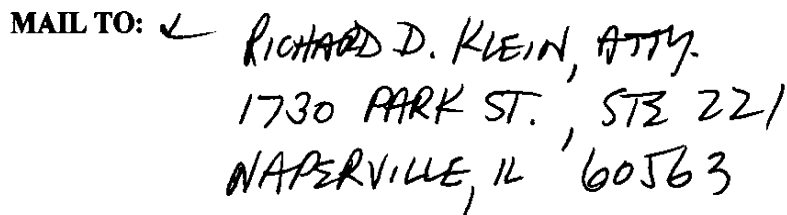 MAIL TO: ↙ RICHARD D. KLEIN, ATTY.
1730 PARK ST., STE 221
NAPERVILLE, IL 60563